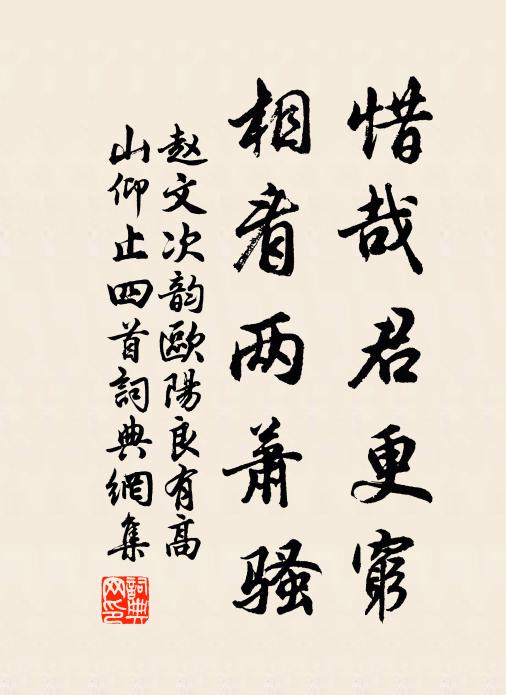 惜哉君更窮
相看两蕭騷
赵文次韵歐陽良有高
山仰止四首詞典網集
詞典網印